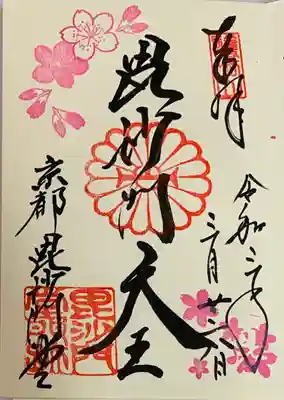 奉拝
令和二年
三月廿六日
毘沙門天王
京都 毘沙門堂
毘沙門